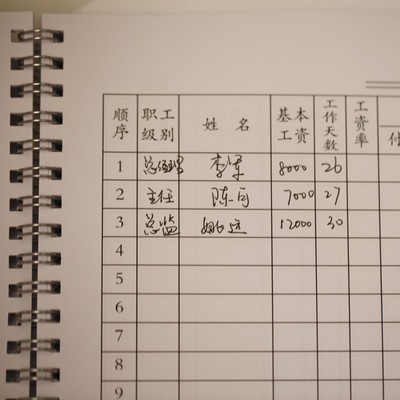 顺序 职工级别 姓 名 基本工资 工作天数 工资率 付
1 总经理 李军 8000 26
2 主任 7000 27
3 总监 姚远 12000 30
4
5
6
7
8
9